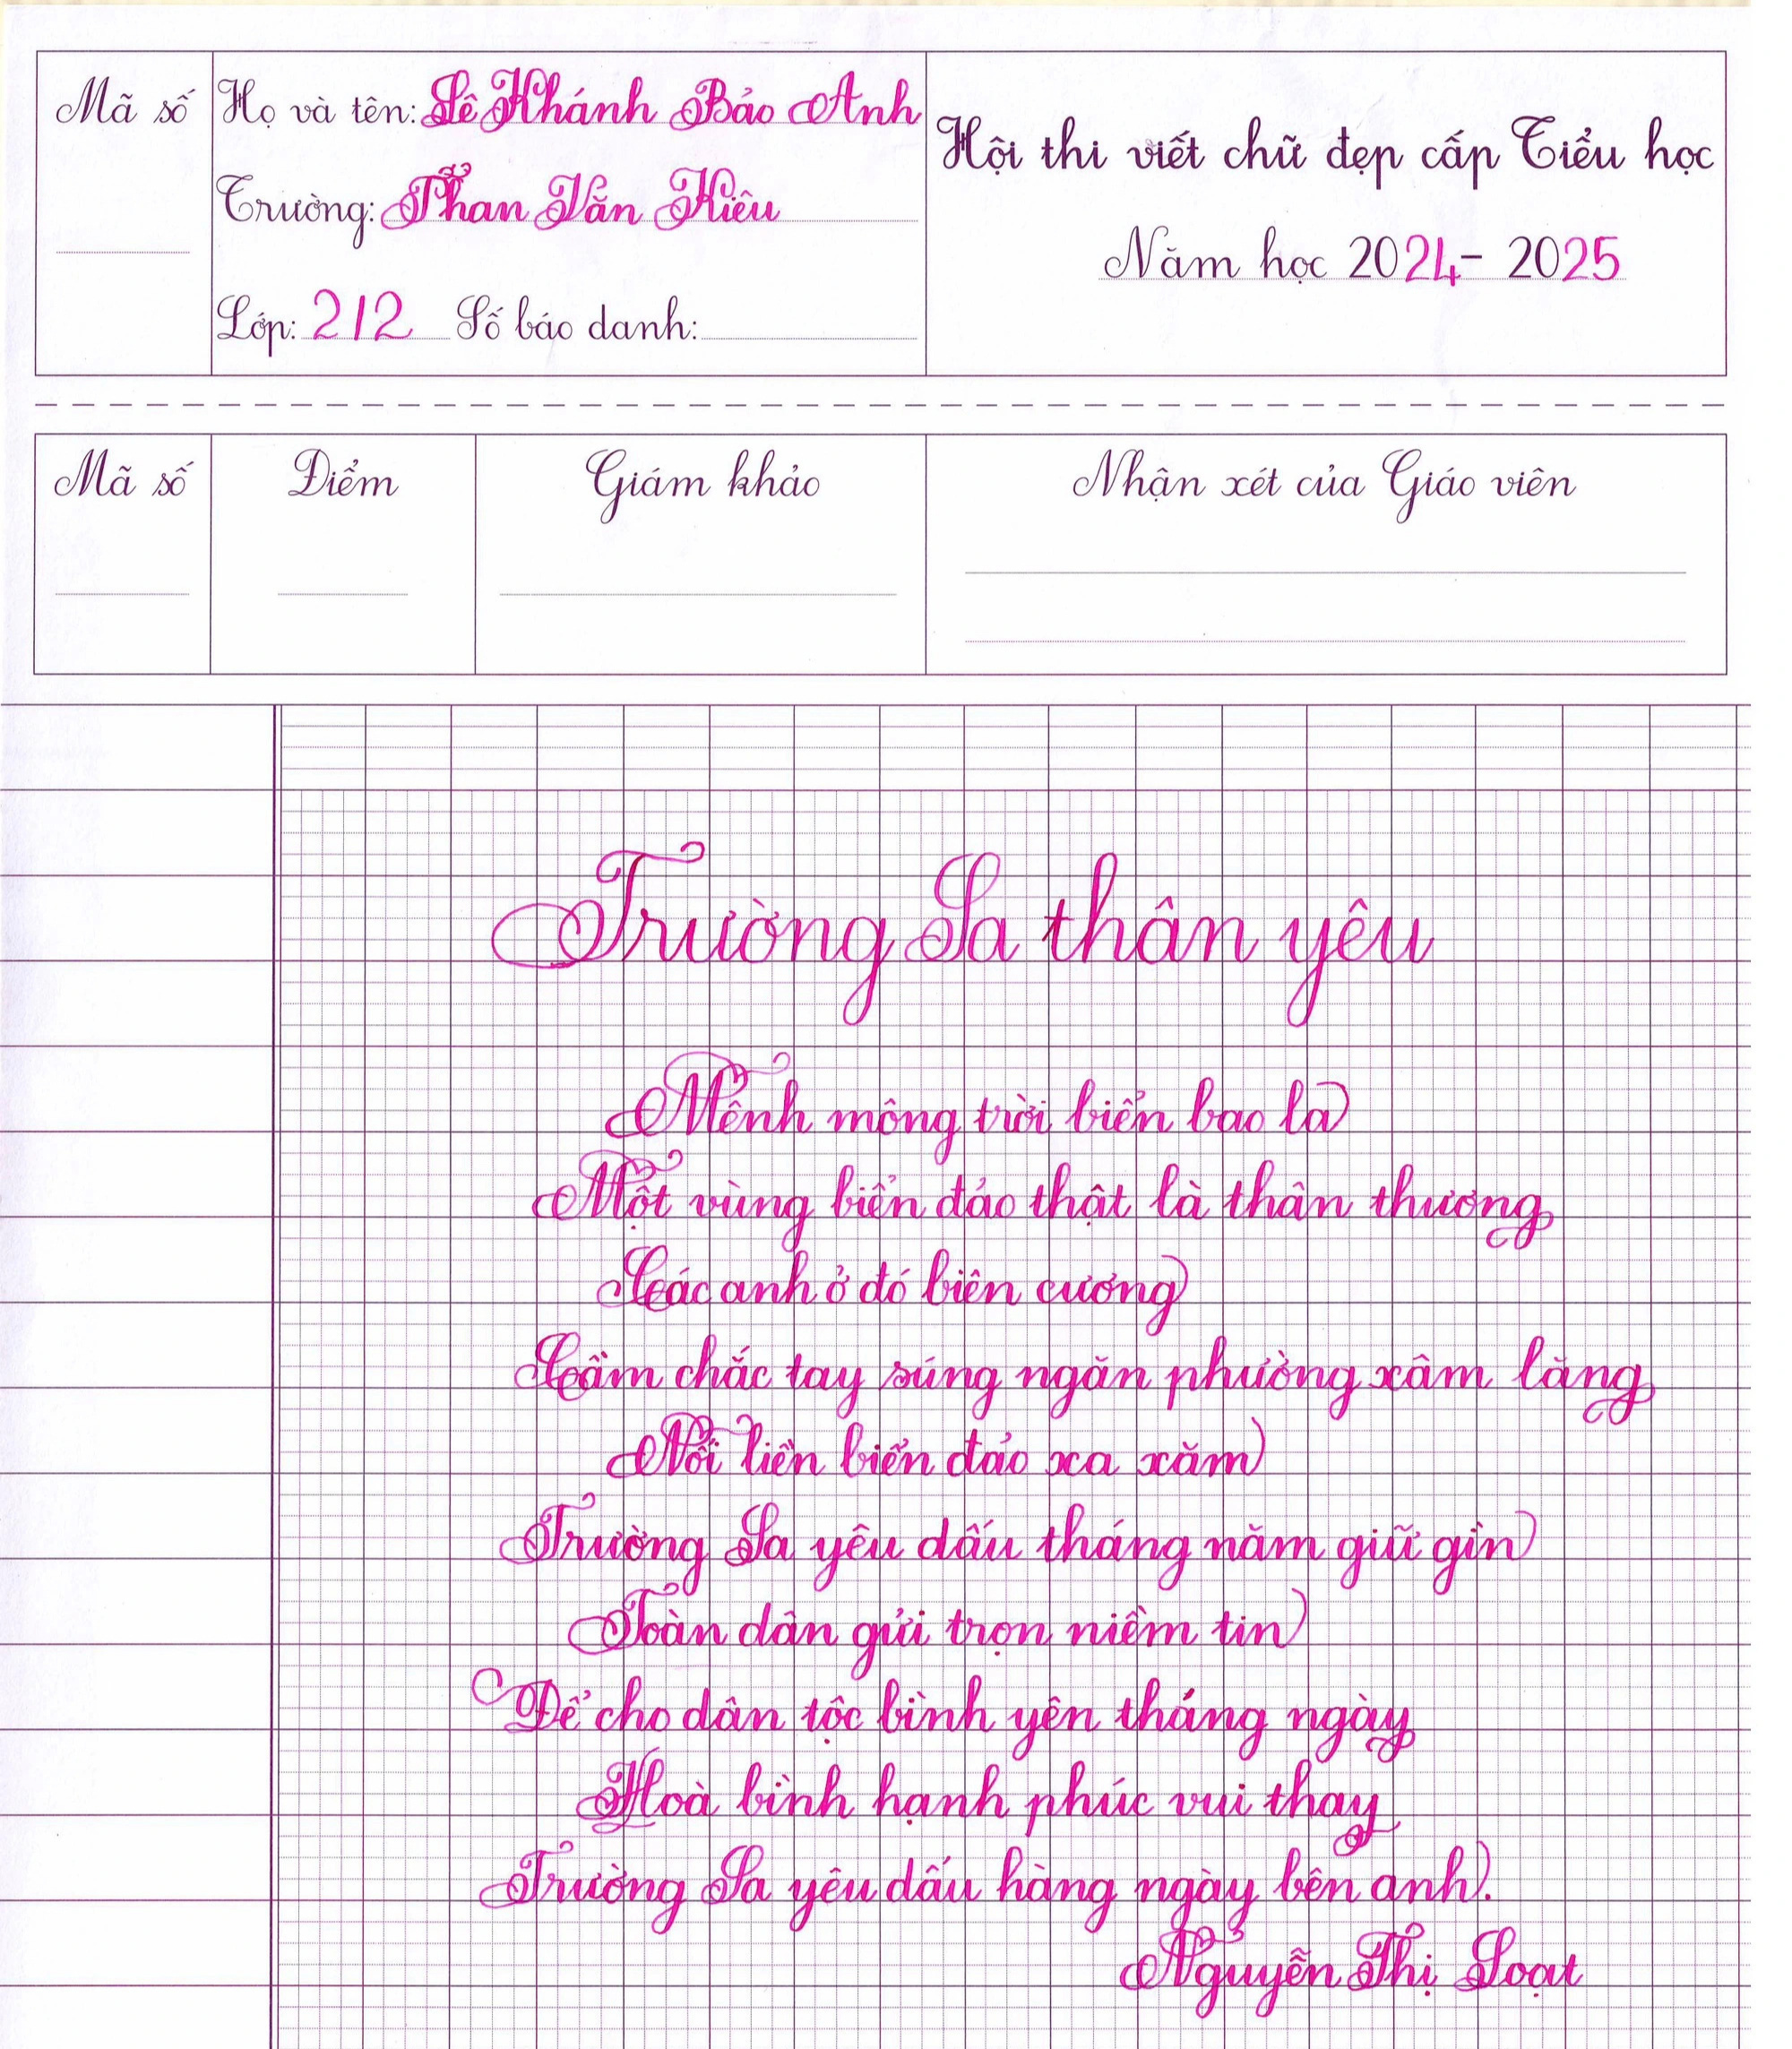 Mã số
Họ và tên: Lê Khánh Bảo Anh
Trường: Phan Văn Kiêu
Lớp: 212 Số báo danh:
Hội thi viết chữ đẹp cấp Tiểu học
Năm học 2024 - 2025
Mã số
Điểm
Giám khảo
Nhận xét của Giáo viên
Trường Sa thân yêu
Mênh mông trời biển bao la
Một vùng biển đảo thật là thân thương
Các anh ở đó biên cương
Cầm chắc tay súng ngăn phường xâm lăng
Nối liền biển đảo xa xăm
Trường Sa yêu dấu tháng năm giữ gìn
Toàn dân gửi trọn niềm tin
Để cho dân tộc bình yên tháng ngày
Hoà bình hạnh phúc vui thay
Trường Sa yêu dấu hàng ngày bên anh.
Nguyễn Thị Loạt